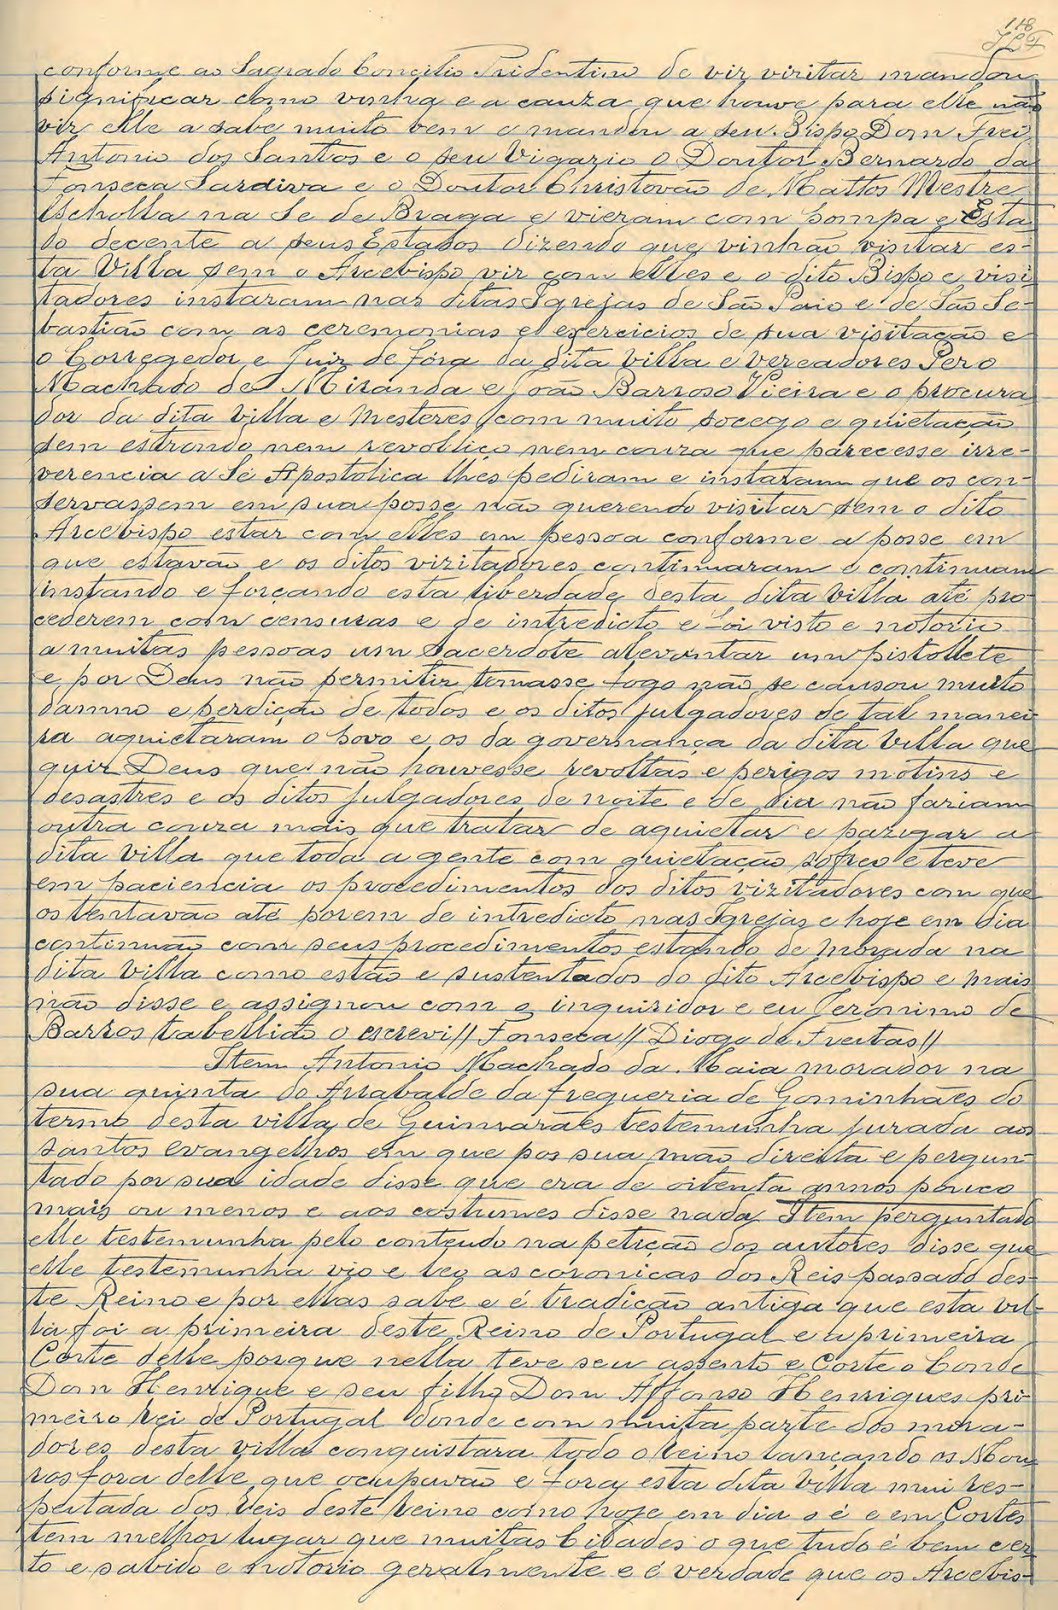 118
conforme ao Sagrado Concilio Tridentino de vir vizitar mandou
significar como vinha e a cauza que houve para elle não
vir elle a sabe muito bem e mandou a seu Bispo Dom Frei
Antonio dos Santos e o seu Vigario o Doutor Bernardo da
Fonseca Sardiva e o Doutor Christovão de Mattos Mestre
Escholla na Se de Braga e vieram com pompa e Esta
do decente a seus Estados dizendo que vinhão visitar es-
ta Villa sem o Arcebispo vir com elles e o dito Bispo e visi
tadores instaram nas ditas Igrejas de São Paio e de São Se-
bastião com as ceremonias e exercicios de sua visitação e
o Corregedor e Juiz de fóra da dita villa e vereadores Pero
Machado de Miranda e João Barroso Vieira e o procura
dor da dita villa e Mesteres com muito socego e quietação
sem estrondo nem revoltiço nem couza que parecesse irre-
verencia a Sé Apostolica lhes pediram e instaram que os con-
servassem em sua posse não querendo visitar sem o dito
Arcebispo estar com elles em pessoa conforme a posse em
que estavão e os ditos vizitadores continuaram e continuam
instando e forçando esta liberdade desta dita villa até pro
cederem com censuras e de intredicto e foi visto e notorio
a muitas pessoas um sacerdote alevantar um pistollete
e por Deus não permitir tomasse fogo não se causou muito
damno e perdição de todos e os ditos julgadores de tal manei
ra aquietaram o povo e os da governança da dita villa que
quiz Deus que não houvesse revoltas e perigos motins e
desastres e os ditos julgadores de noite e de dia não fariam
outra couza mais que tratar de aquietar e pazigar a
dita villa que toda a gente com quietação sofreo e teve
em paciencia os procedimentos dos ditos vizitadores com que
ostentavão até porem de intredicto nas Igrejas e hoje em dia
continuão com seus procedimentos estando de morada na
dita villa como estão e sustentados do dito Arcebispo e mais
não disse e assignou com o inquiridor e eu Jeronimo de
Barros tabellião o escrevi // Fonseca // Diogo de Freitas //
Item Antonio Machado da Maia morador na
sua quinta do Arrabalde da freguezia de Gominhães do
termo desta villa de Guimarães testemunha jurada aos
santos evangelhos em que pos sua mão direita e pergun-
tado por sua idade disse que era de oitenta annos pouco
mais ou menos e aos costumes disse nada Item perguntado
elle testemunha pelo conteudo na petição dos autores disse que
elle testemunha vio e leo as coronicas dos Reis passado des-
te Reino e por ellas sabe e é tradicão antiga que esta vil-
la foi a primeira deste Reino de Portugal e a primeira
Corte delle porque nella teve seu assento e Corte o Conde
Dom Henrique e seu filho Dom Affonso Henriques pri-
meiro Rei de Portugal donde com muita parte dos mora-
dores desta villa conquistara todo o reino lançando os Mou
ros fora delle que ocupavão e fora esta dita villa mui res-
peitada dos Reis deste Reino como hoje em dia o é e em Cortes
tem melhor lugar que muitas Cidades o que tudo é bem cer
to e sabido e notorio geralmente e é verdade que os Arcebis-